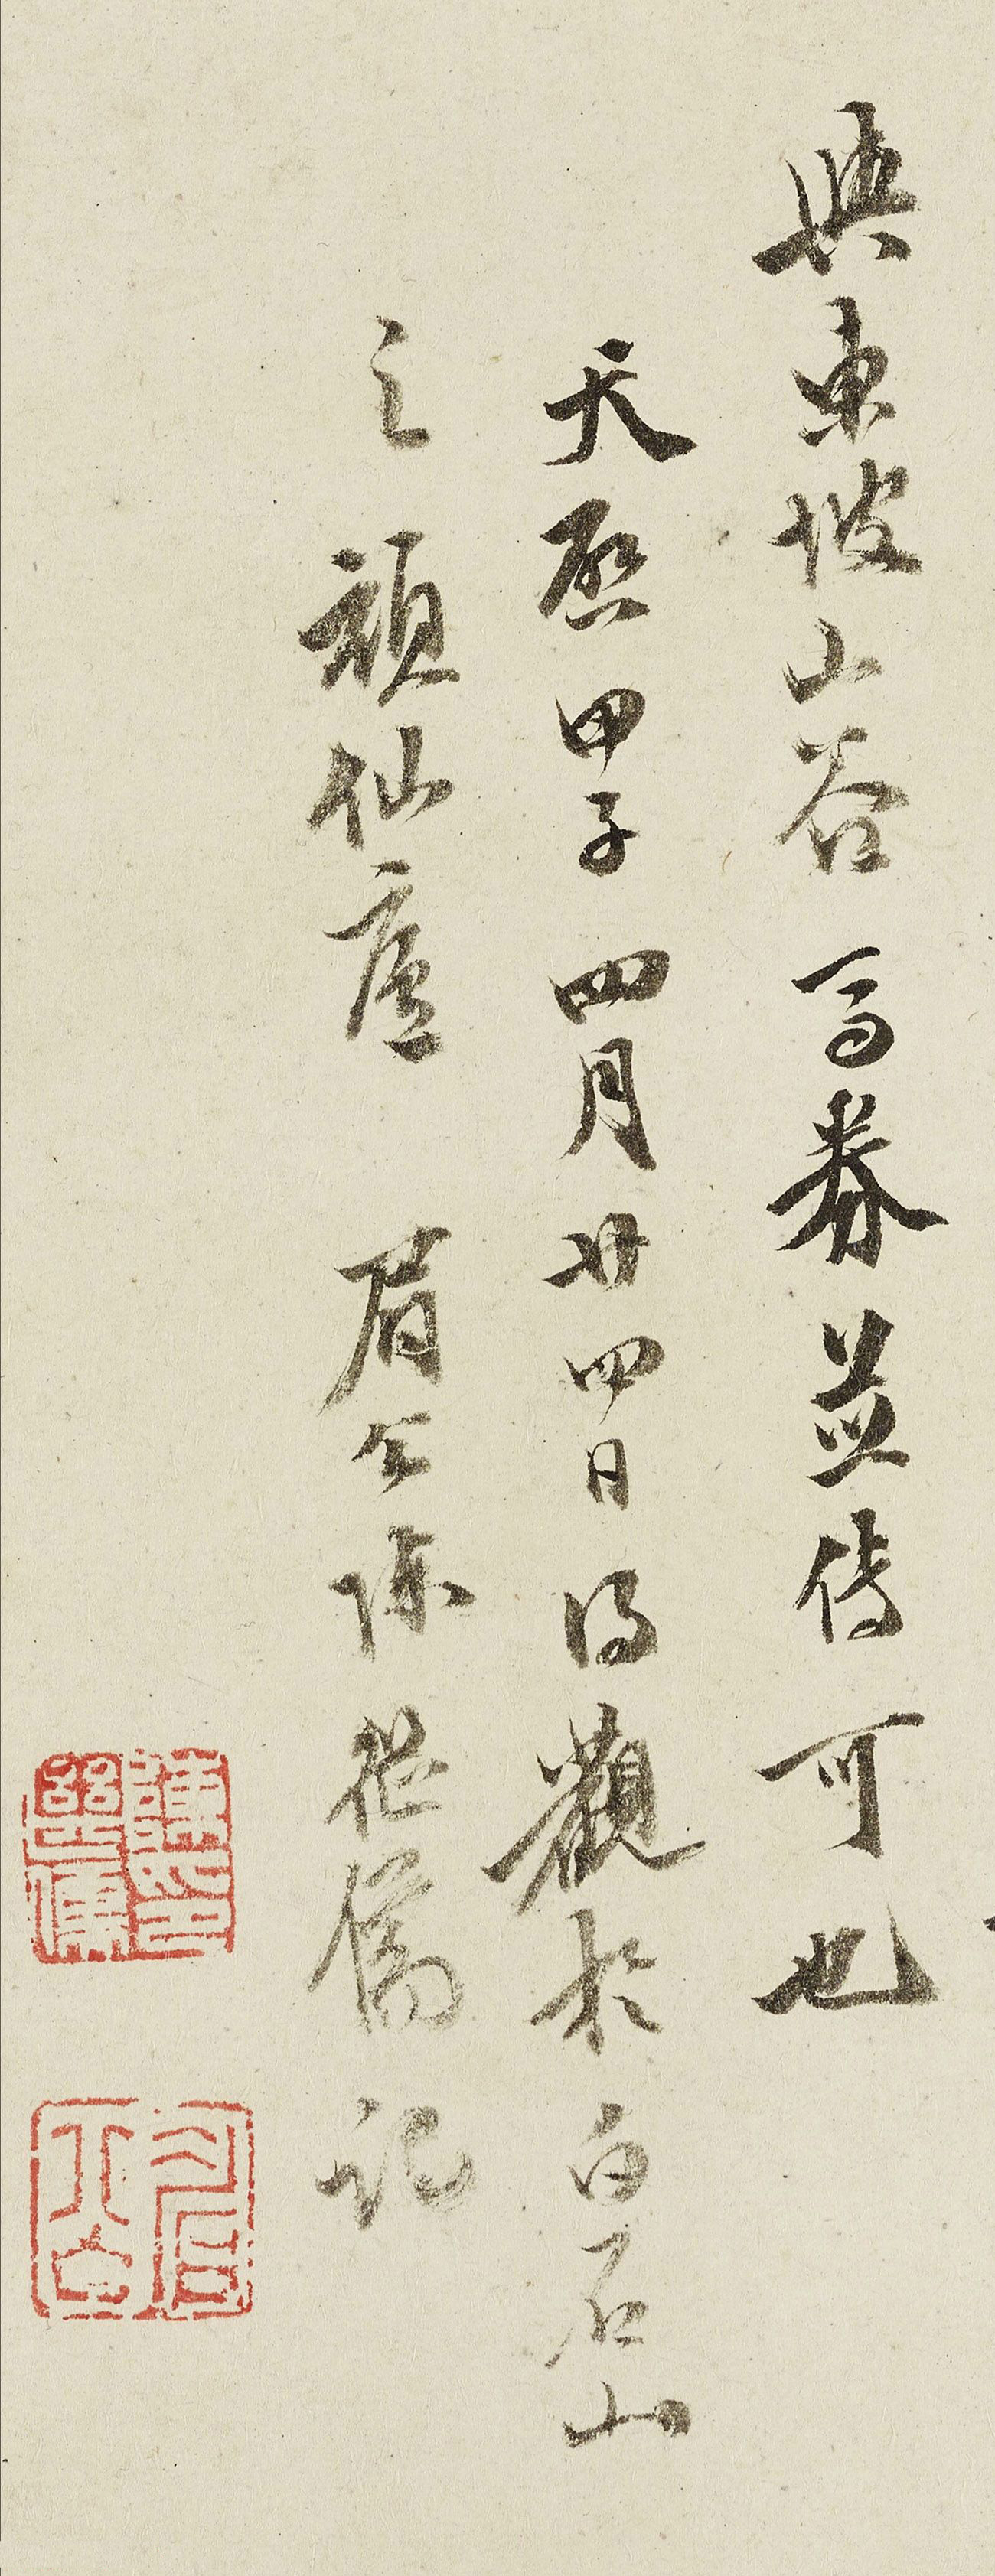 與東坡山谷馬券並傳可也
天啟甲子四月廿四日得觀於白石山
之頑仙廬 眉公陳繼儒記
陳印繼儒
眉公